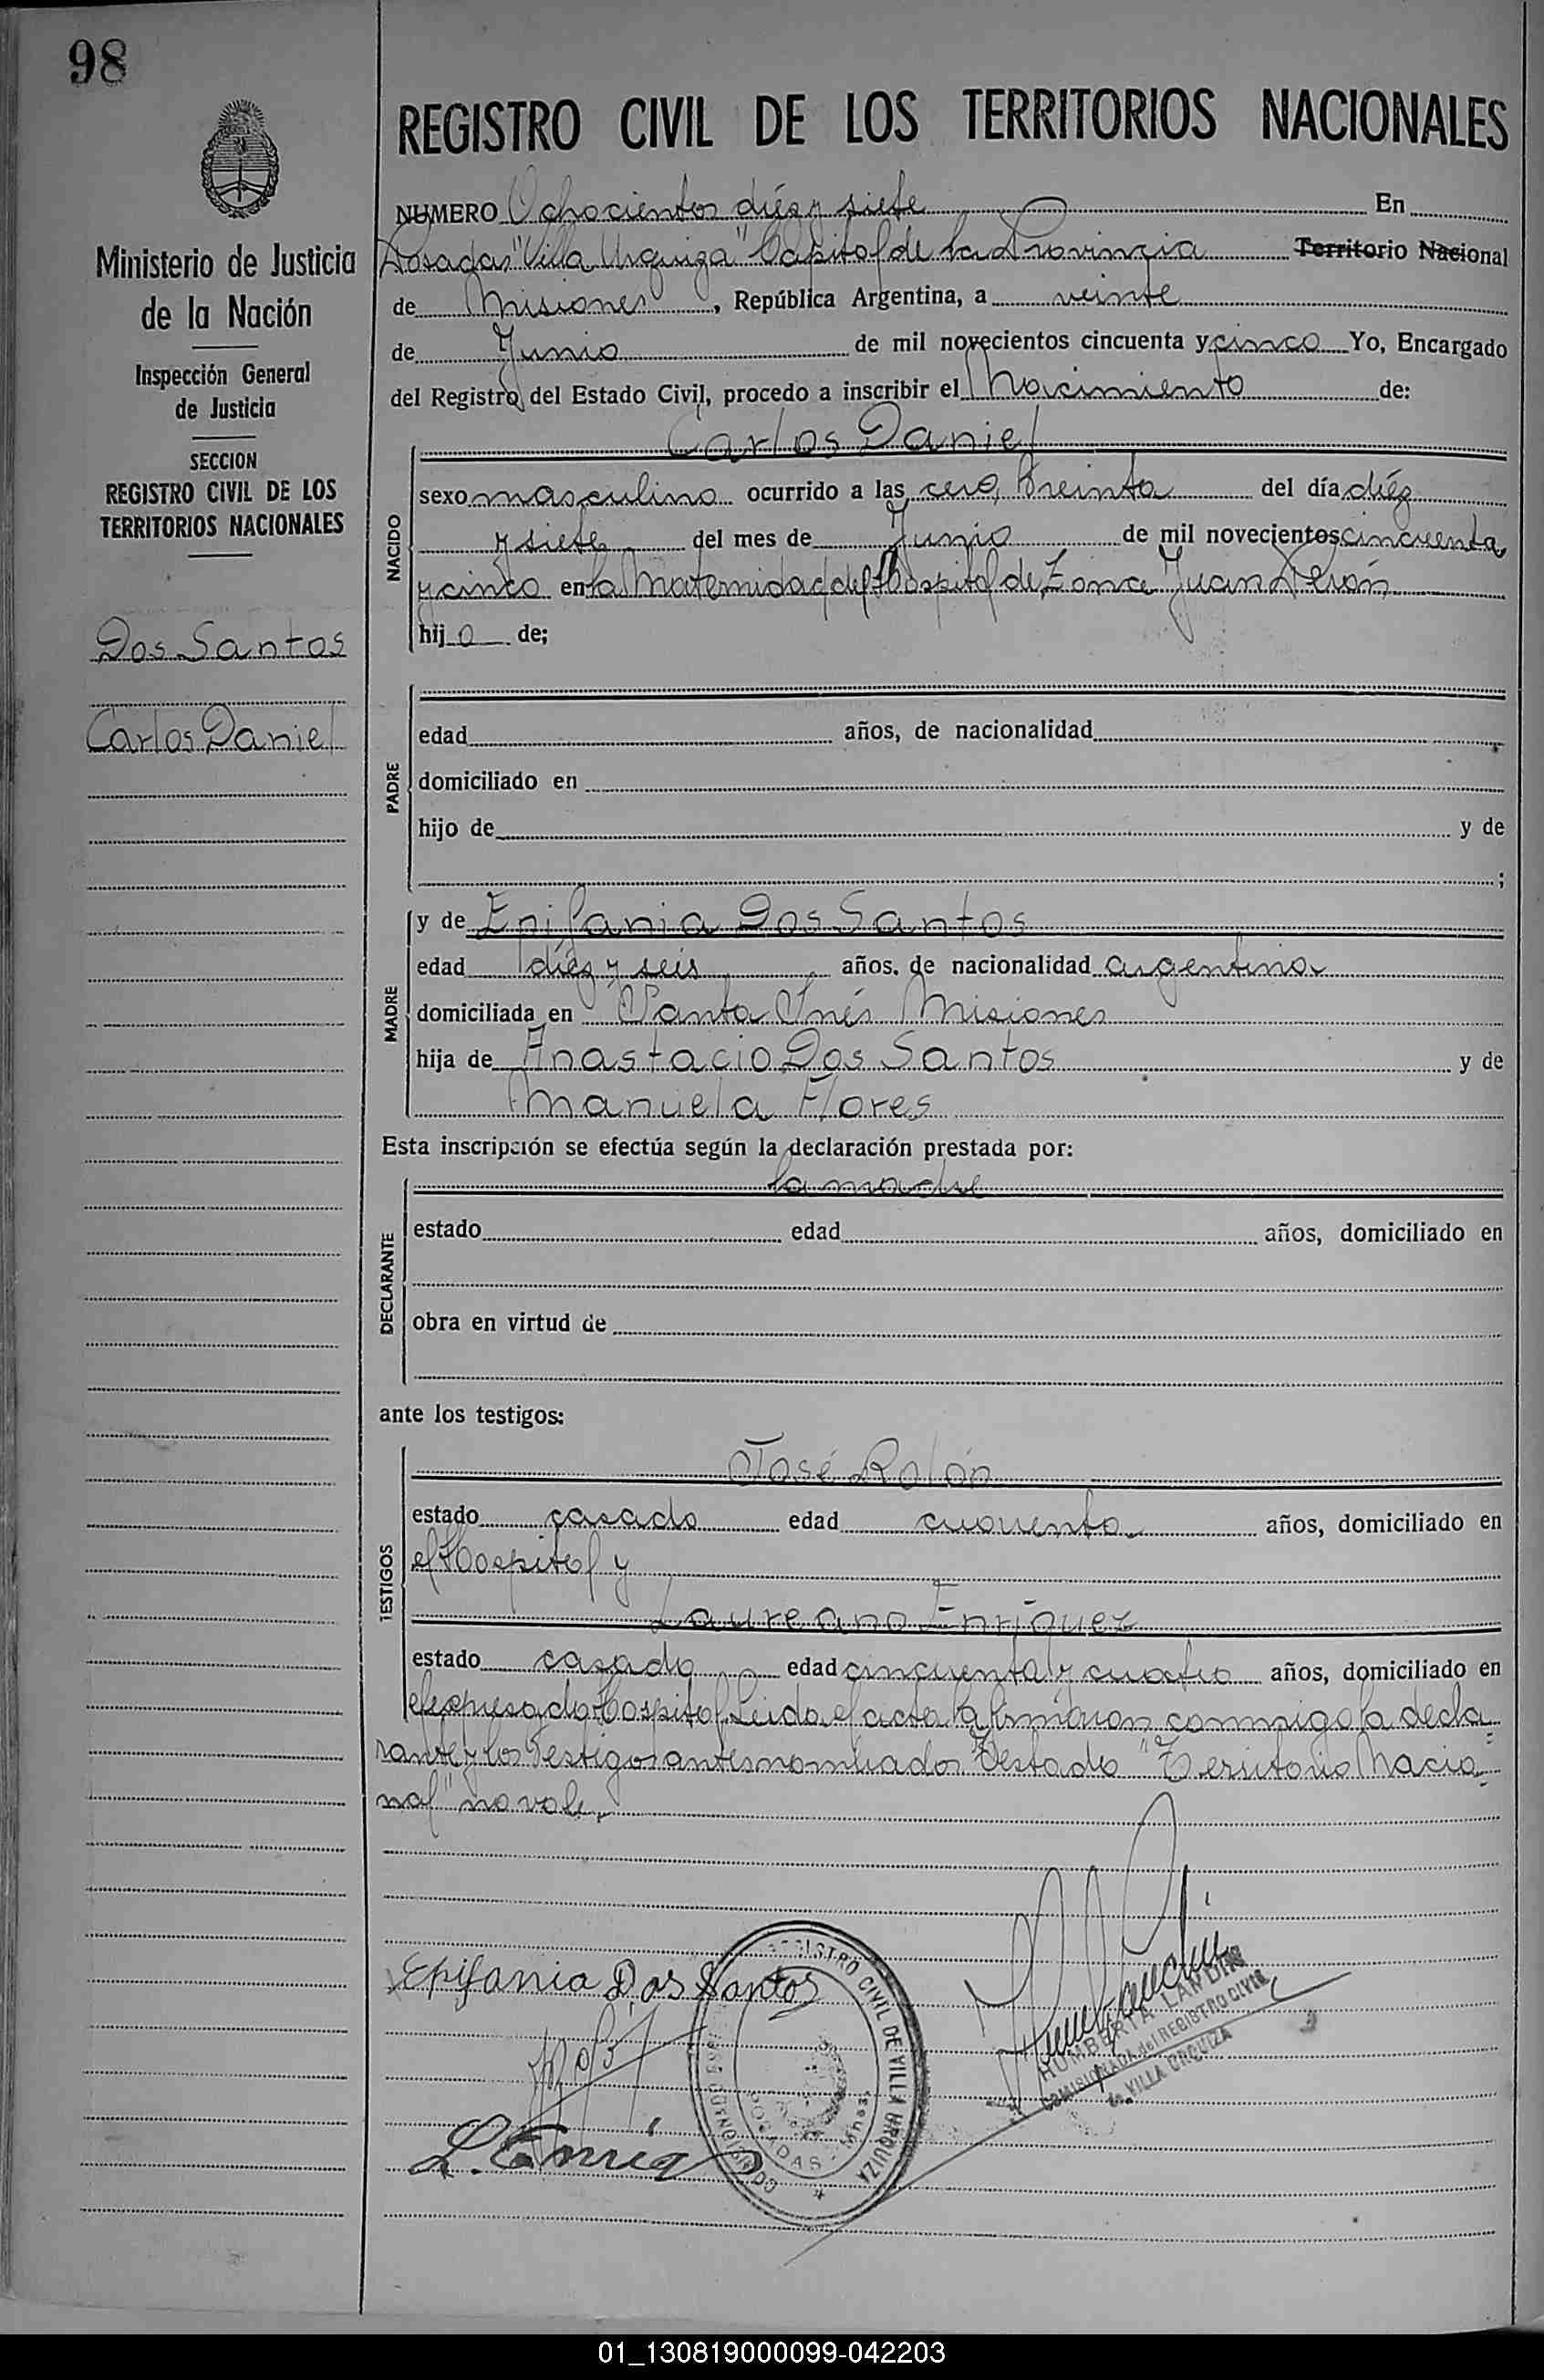 98
REGISTRO CIVIL DE LOS TERRITORIOS NACIONALES
Ministerio de Justicia
de la Nación
Inspección General
de Justicia
SECCION
REGISTRO CIVIL DE LOS
TERRITORIOS NACIONALES
Dos Santos
Carlos Daniel
NUMERO Ochocientos diéz y siete En
Posadas "Villa Urquiza" Capital de la Provincia Territorio Nacional
de Misiones, República Argentina, a veinte
de Junio de mil novecientos cincuenta y cinco Yo, Encargado
del Registro del Estado Civil, procedo a inscribir el Nacimiento de:
NACIDO
Carlos Daniel
sexo masculino ocurrido a las cero, treinta del día diéz
y siete del mes de Junio de mil novecientos cincuenta
y cinco en la Maternidad del Hospital de Zona Juan Perón
hijo de;
PADRE
edad años, de nacionalidad
domiciliado en
hijo de y de
;
MADRE
y de Epifania Dos Santos
edad diéz y seis años, de nacionalidad argentina
domiciliada en Santa Inés Misiones
hija de Anastacio Dos Santos y de
Manuela Flores
Esta inscripción se efectúa según la declaración prestada por:
DECLARANTE
la madre
estado edad años, domiciliado en
obra en virtud de
ante los testigos:
TESTIGOS
José Rolón
estado casado edad cuarenta años, domiciliado en
el Hospital y
Laureano Enriquez
estado casado edad cincuenta y cuatro años, domiciliado en
el expresado Hospital. Leida el acta la firmaron conmigo la decla
rante y los Testigos antes nombrados Testado "Territorio Nacio
nal" no vale.
Epifania Dos Santos
L. Enriq
REGISTRO CIVIL DE VILLA URQUIZA
POSADAS - Mnes
HUMBERTA LANDIN
COMISIONADA del REGISTRO CIVIL
de VILLA URQUIZA
01_130819000099-042203